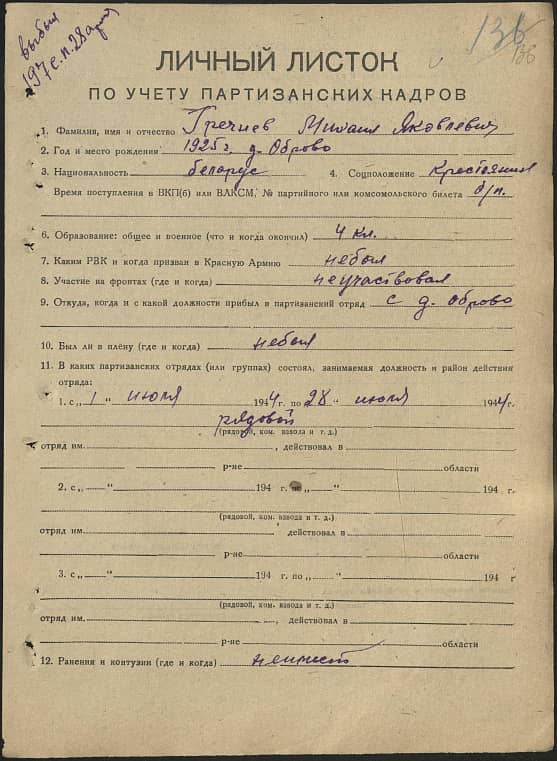 выбыл
197 с.п. 28 армия
136
136
ЛИЧНЫЙ ЛИСТОК
ПО УЧЕТУ ПАРТИЗАНСКИХ КАДРОВ
1. Фамилия, имя и отчество Гречнев Михаил Яковлевич
2. Год и место рождения 1925 г. д. Оброво
3. Национальность беларус 4. Соцположение Крестьянин
Время поступления в ВКП(б) или ВЛКСМ, № партийного или комсомольского билета б/п.
6. Образование: общее и военное (что и когда окончил) 4 кл.
7. Каким РВК и когда призван в Красную Армию небыл
8. Участие на фронтах (где и когда) неучаствовал
9. Откуда, когда и с какой должности прибыл в партизанский отряд с д. Оброво
10. Был ли в плену (где и когда) небыл
11. В каких партизанских отрядах (или группах) состоял, занимаемая должность и район действия
отряда:
1. с „ 1 “ июля 1944 г. по 28 “ июля 1944 г.
рядовой
(рядовой, ком. взвода и т. д.)
отряд им. , действовал в
р-не области
2. с „ “ 194 г. по „ “ 194 г.
(рядовой, ком. взвода и т. д.)
отряд им. , действовал в
р-не области
3. с „ “ 194 г. по „ “ 194 г
(рядовой, ком. взвода и т. д.)
отряд им. , действовал в
р-не области
12. Ранения и контузии (где и когда) неимеет